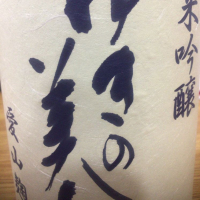 米吟醸
ゆきの美人
愛山麹